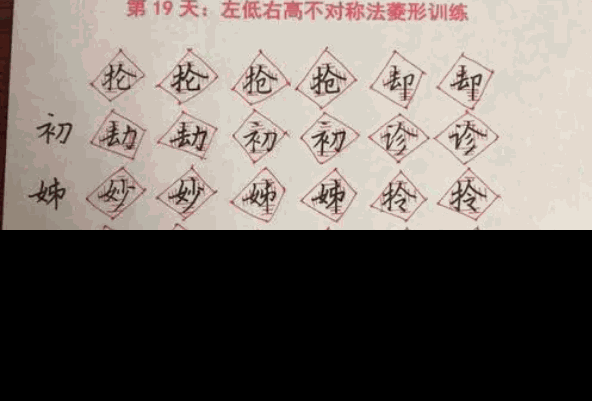 第19天：左低右高不对称法菱形训练
抡 抡 抢 抢 却 却
初 劫 劫 初 初 诊 诊
姊 妙 妙 姊 姊 拎 拎